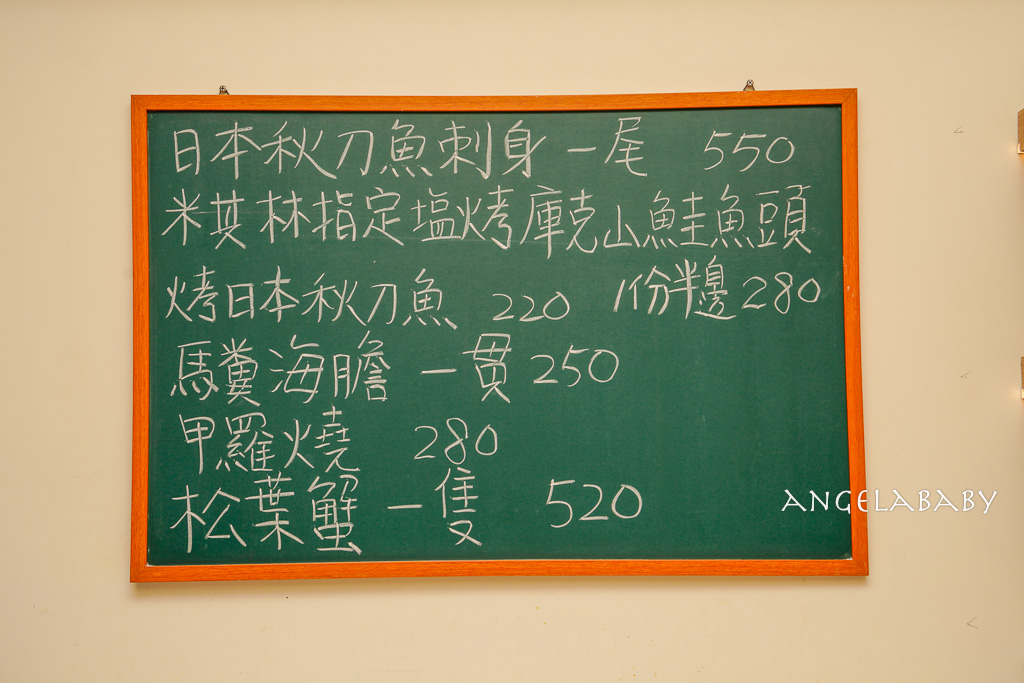 日本秋刀魚刺身 一尾 550
米其林指定塩烤庫克山鮭魚頭
1份半邊280
烤日本秋刀魚 220
馬糞海膽 一貫 250
甲羅燒 280
松葉蟹 一隻 520
ANGELABABY